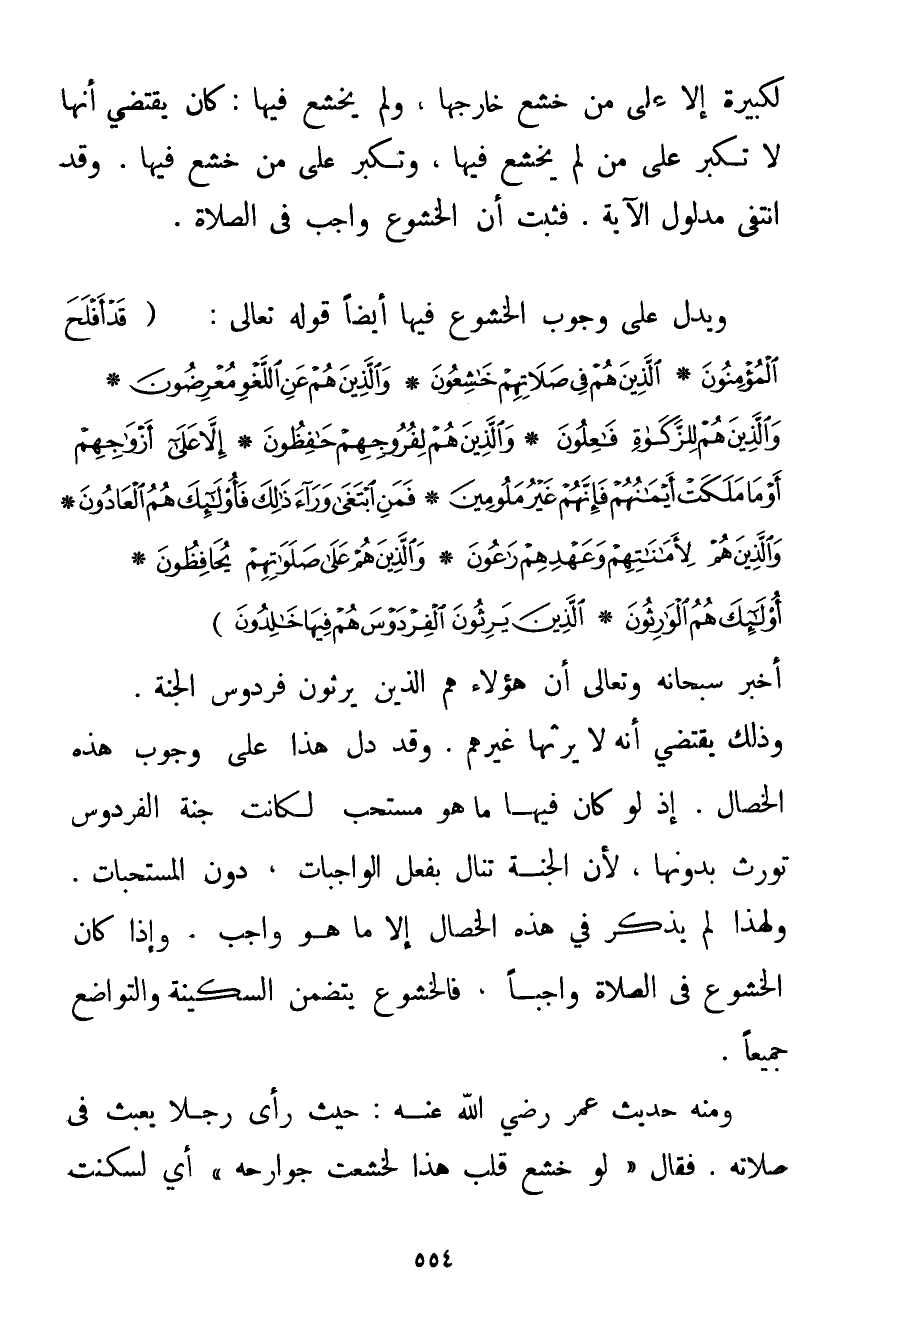 لكبيرة إلا على من خشع خارجها ، ولم يخشع فيها : كان يقتضي أنها
لا تكبر على من لم يخشع فيها ، وتكبر على من خشع فيها . وقد
انتفى مدلول الآية . فثبت أن الخشوع واجب فى الصلاة .
ويدل على وجوب الخشوع فيها أيضاً قوله تعالى : ( قَدْ أَفْلَحَ
ٱلْمُؤْمِنُونَ * ٱلَّذِينَ هُمْ فِي صَلَاتِهِمْ خَٰشِعُونَ * وَٱلَّذِينَ هُمْ عَنِ ٱللَّغْوِ مُعْرِضُونَ *
وَٱلَّذِينَ هُمْ لِلزَّكَوٰةِ فَٰعِلُونَ * وَٱلَّذِينَ هُمْ لِفُرُوجِهِمْ حَٰفِظُونَ * إِلَّا عَلَىٰٓ أَزْوَٰجِهِمْ
أَوْ مَا مَلَكَتْ أَيْمَٰنُهُمْ فَإِنَّهُمْ غَيْرُ مَلُومِينَ * فَمَنِ ٱبْتَغَىٰ وَرَآءَ ذَٰلِكَ فَأُوْلَٰٓئِكَ هُمُ ٱلْعَادُونَ *
وَٱلَّذِينَ هُمْ لِأَمَٰنَٰتِهِمْ وَعَهْدِهِمْ رَٰعُونَ * وَٱلَّذِينَ هُمْ عَلَىٰ صَلَوَٰتِهِمْ يُحَافِظُونَ *
أُوْلَٰٓئِكَ هُمُ ٱلْوَٰرِثُونَ * ٱلَّذِينَ يَرِثُونَ ٱلْفِرْدَوْسَ هُمْ فِيهَا خَٰلِدُونَ )
أخبر سبحانه وتعالى أن هؤلاء هم الذين يرثون فردوس الجنة .
وذلك يقتضي أنه لا يرثها غيرهم . وقد دل هذا على وجوب هذه
الخصال . إذ لو كان فيها ما هو مستحب لكانت جنة الفردوس
تورث بدونها ، لأن الجنة تنال بفعل الواجبات ، دون المستحبات .
ولهذا لم يذكر في هذه الخصال إلا ما هو واجب . وإذا كان
الخشوع فى الصلاة واجباً ، فالخشوع يتضمن السكينة والتواضع
جميعاً .
ومنه حديث عمر رضي الله عنه : حيث رأى رجلا يعبث فى
صلاته . فقال « لو خشع قلب هذا لخشعت جوارحه » أي لسكنت
٥٥٤